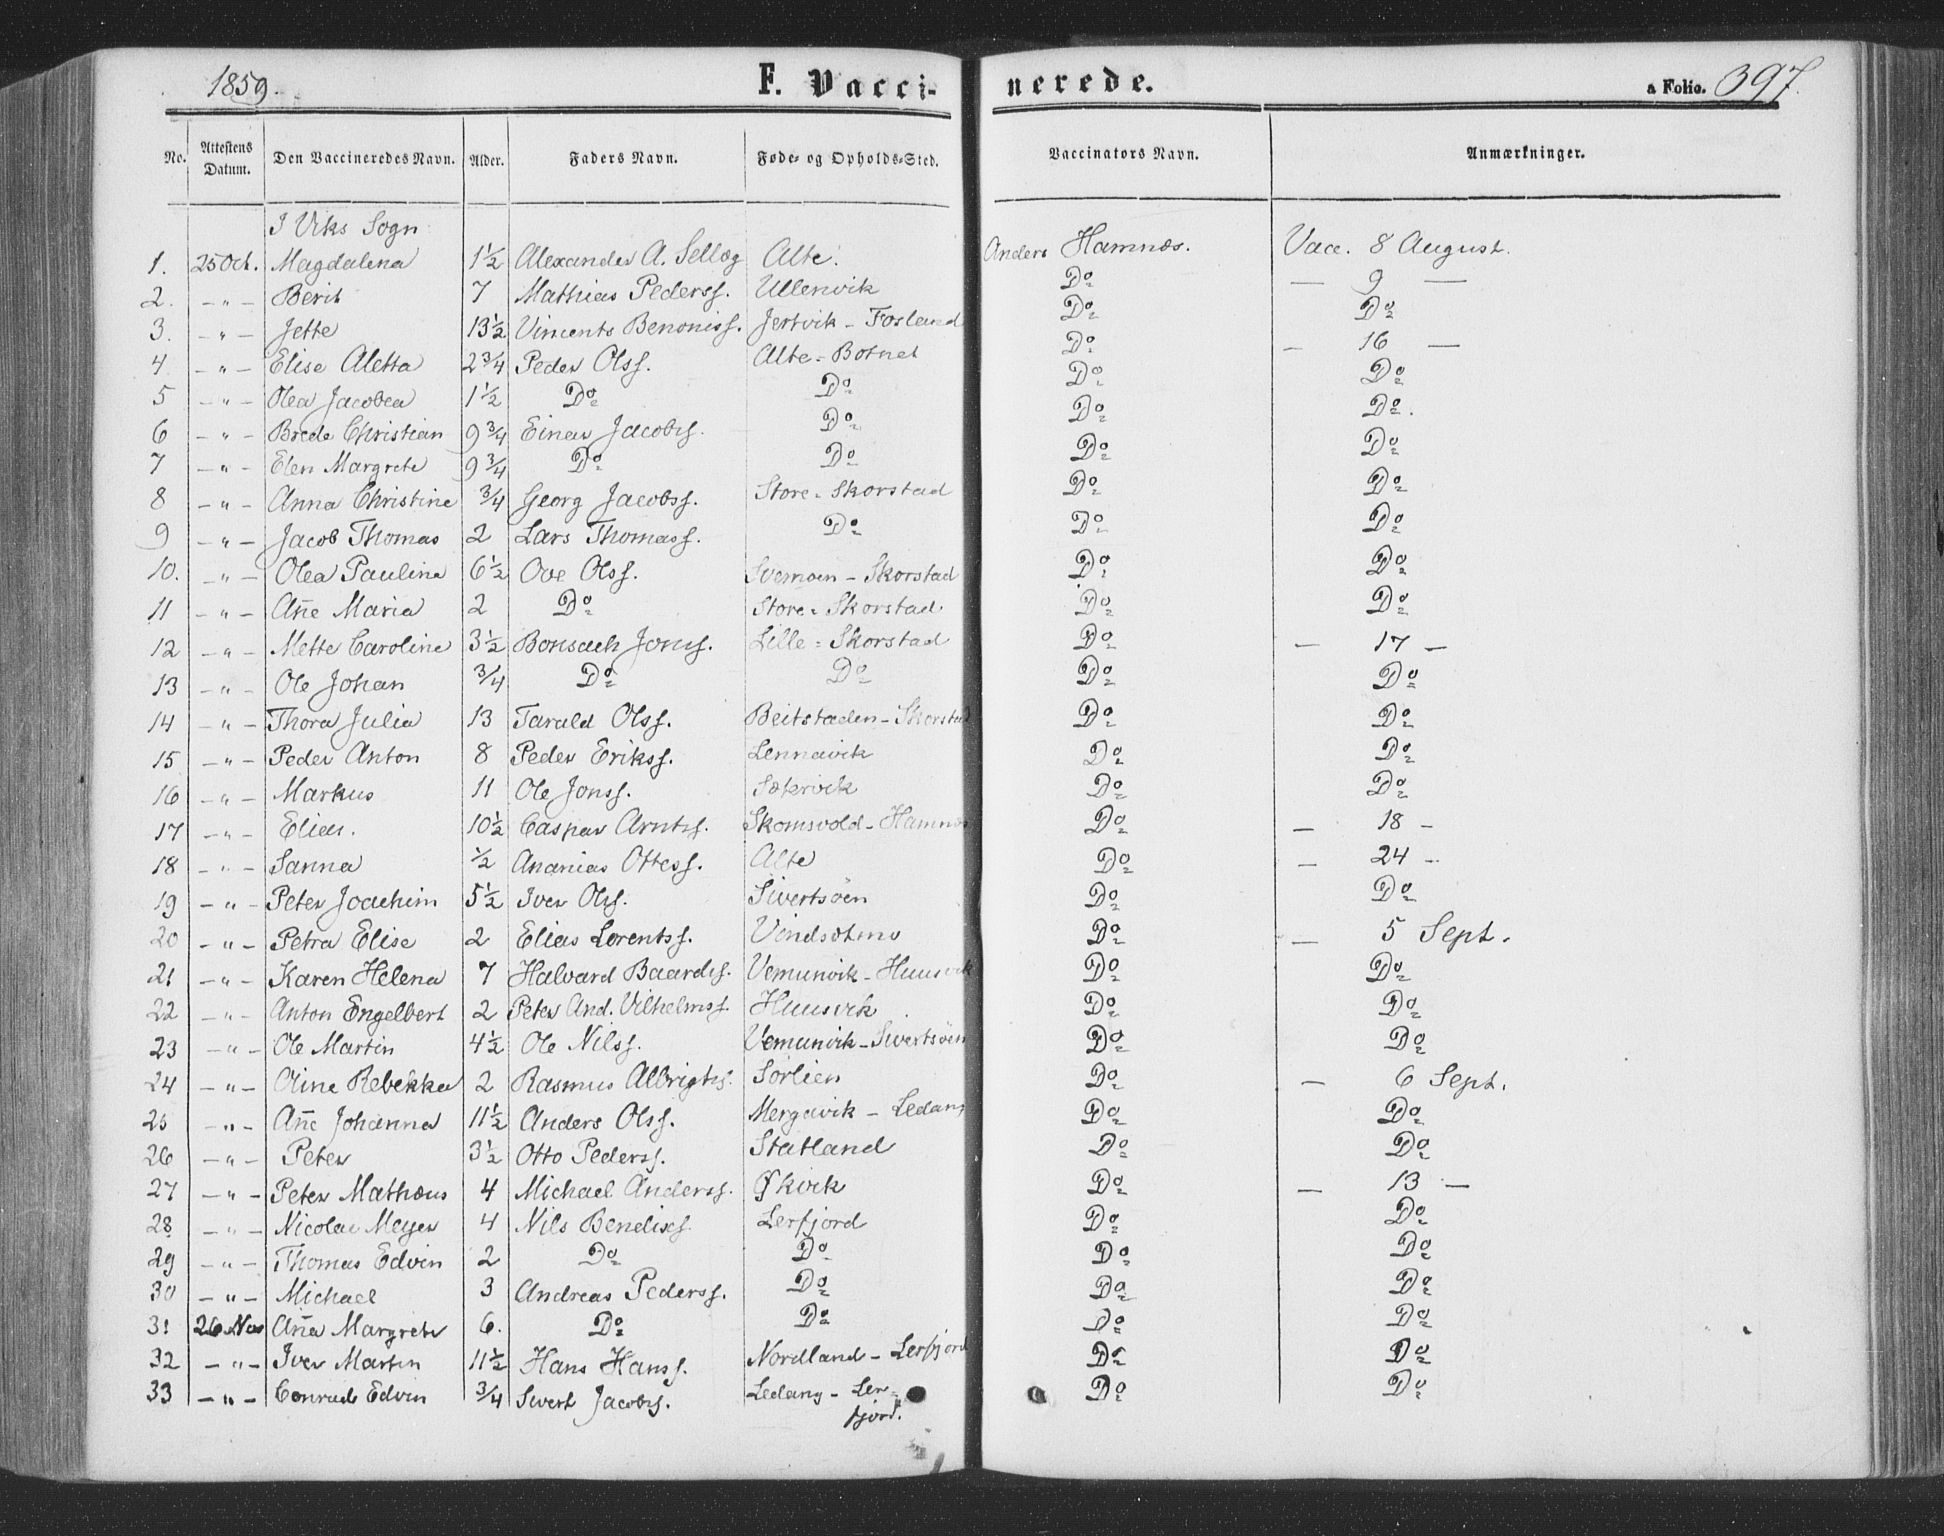 1859. F. Vacci- nerede. a Folio. 397.
No. Attestens Datum. Den Vaccineredes Navn. Alder. Faders Navn. Føde- og Opholds-Sted. Vaccinators Navn. Anmærkninger.
I Viks Sogn
1. 25 Oct. Magdalena 1½ Alexander A. Sellæg Alte. Anders Hamnæs. Vacc. 8 August.
2. - " - Berit 7 Mathias Pederss. Ullenvik Do — 9 —
3. - " - Jette 13½ Vincents Benoniss. Jertvik - Fosland Do Do
4 - " - Elise Aletta 2¾ Peder Olss. Alte - Botnet Do — 16 —
5 - " - Olea Jacobea 1½ Do Do Do Do
6 - " - Brede Christian 9¾ Einar Jacobss. Do Do Do.
7 - " - Elen Margrete 9¾ Do Do Do Do
8 - " - Anna Christine ¾ Georg Jacobss. Store - Skorstad Do Do
9 - " - Jacob Thomas 2 Lars Thomass. Do Do Do
10. - " - Olea Paulina 6½ Ove Olss. Svemoen - Skorstad Do Do
11 - " - Ane Maria 2 Do Store - Skorstad Do Do
12 - " - Mette Caroline 3½ Bonsach Jonss. Lille - Skorstad Do — 17 —
13 - " - Ole Johan ¾ Do Do Do Do
14 - " - Thora Julia 13 Tarald Olss. Beitstaden - Skorstad Do Do
15 - " - Peder Anton 8 Peder Erikss. Lennavik Do Do
16 - " - Markus 11 Ole Jonss. Sætervik Do Do
17 - " - Elias. 10½ Caspar Arntss. Skomsvold - Hamnæs Do — 18 -
18 - " - Sanna ½ Ananias Ottess. Alte Do — 24 -
19 - " - Peter Joachim 5½ Iver Olss. Sivertsöen Do Do
20 - " - Petra Elise 2 Elias Lorentss. Vindsætmo Do — 5 Sept.
21 - " - Karen Helena 7 Halvard Baardss. Vemunvik - Huusvik Do Do
22 - " - Anton Engelbert 2 Peter And. Vilhelmss. Huusvik Do Do
23 - " - Ole Martin 4½ Ole Nilss. Vemunvik - Sivertsöen Do Do
24 - " - Oline Rebekka 2 Rasmus Albrigtss. Sörlien Do — 6 Sept.
25 - " - Ane Johanna 11½ Anders Olss. Mergavik - Ledang Do Do
26 - " - Peter 3½ Otto Pederss. Statland Do Do
27 - " - Peter Mathæus 4 Michael Anderss. Økvik Do — 13 —
28 - " - Nicolai Meyer 4 Nils Bendixs. Lerfjord Do Do
29 - " - Thomas Edvin 2 Do Do Do Do
30 - " - Michael 3 Andreas Pederss. Do Do Do
31 26 Nov Ana Margrete 6. Do Do Do Do
32 - " - Iver Martin 11½ Hans Hanss. Nordland - Lerfjord Do Do
33 - " - Conrad Edvin ¾ Sivert Jacobss. Ledang - Ler- Do Do
fjord.